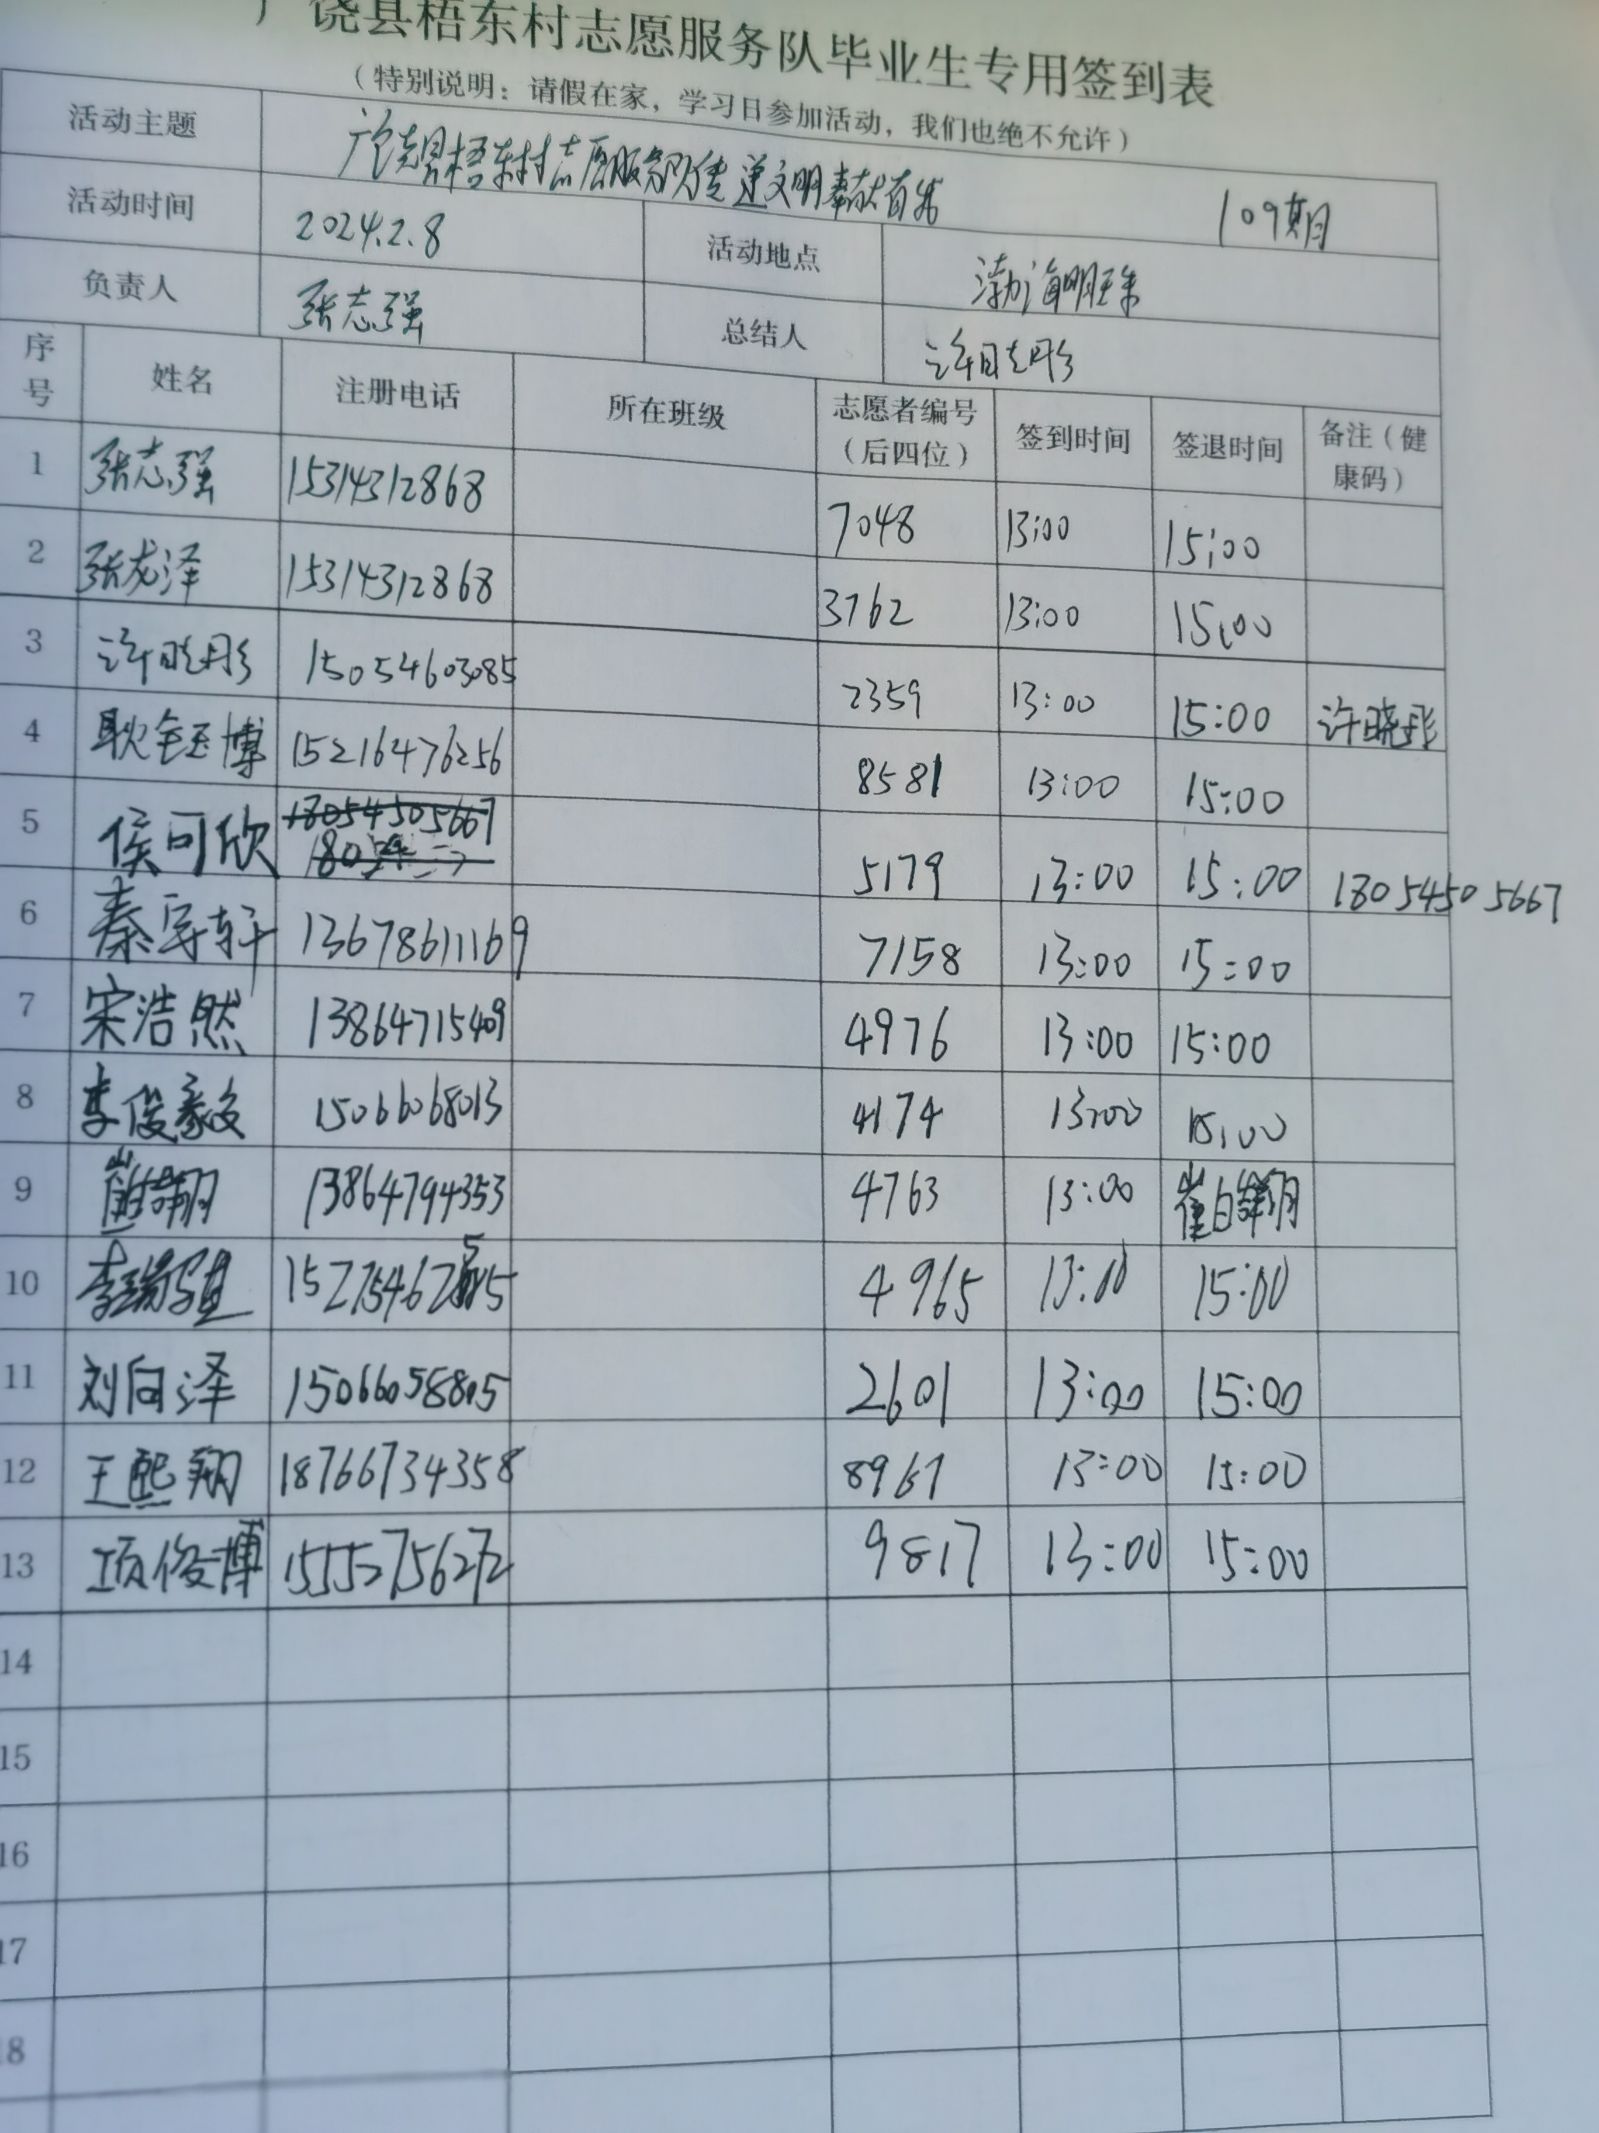 广饶县梧东村志愿服务队毕业生专用签到表
（特别说明：请假在家，学习日参加活动，我们也绝不允许）
活动主题 广饶县梧东村志愿服务队传递文明奉献首发 109期
活动时间 2024.2.8 活动地点 渤海明珠
负责人 张志强 总结人 许晓彤
序号 姓名 注册电话 所在班级 志愿者编号（后四位） 签到时间 签退时间 备注（健康码）
1 张志强 15314312868 7048 13:00 15:00
2 张龙泽 15314312868 3762 13:00 15:00
3 许晓彤 15054603085 2359 13:00 15:00 许晓彤
4 耿钰博 15216476256 8581 13:00 15:00
5 侯可欣 18054505667 5179 13:00 15:00 18054505667
6 秦宇轩 13678611169 7158 13:00 15:00
7 宋浩然 13864715409 4976 13:00 15:00
8 李俊毅 15066068013 4174 13:00 15:00
9 13864794353 4763 13:00
10 4965 13:00 15:00
11 刘向泽 15066058805 2601 13:00 15:00
12 王熙翔 18766734358 8967 13:00 15:00
13 项俊博 15552756272 9817 13:00 15:00
14
15
16
17
18